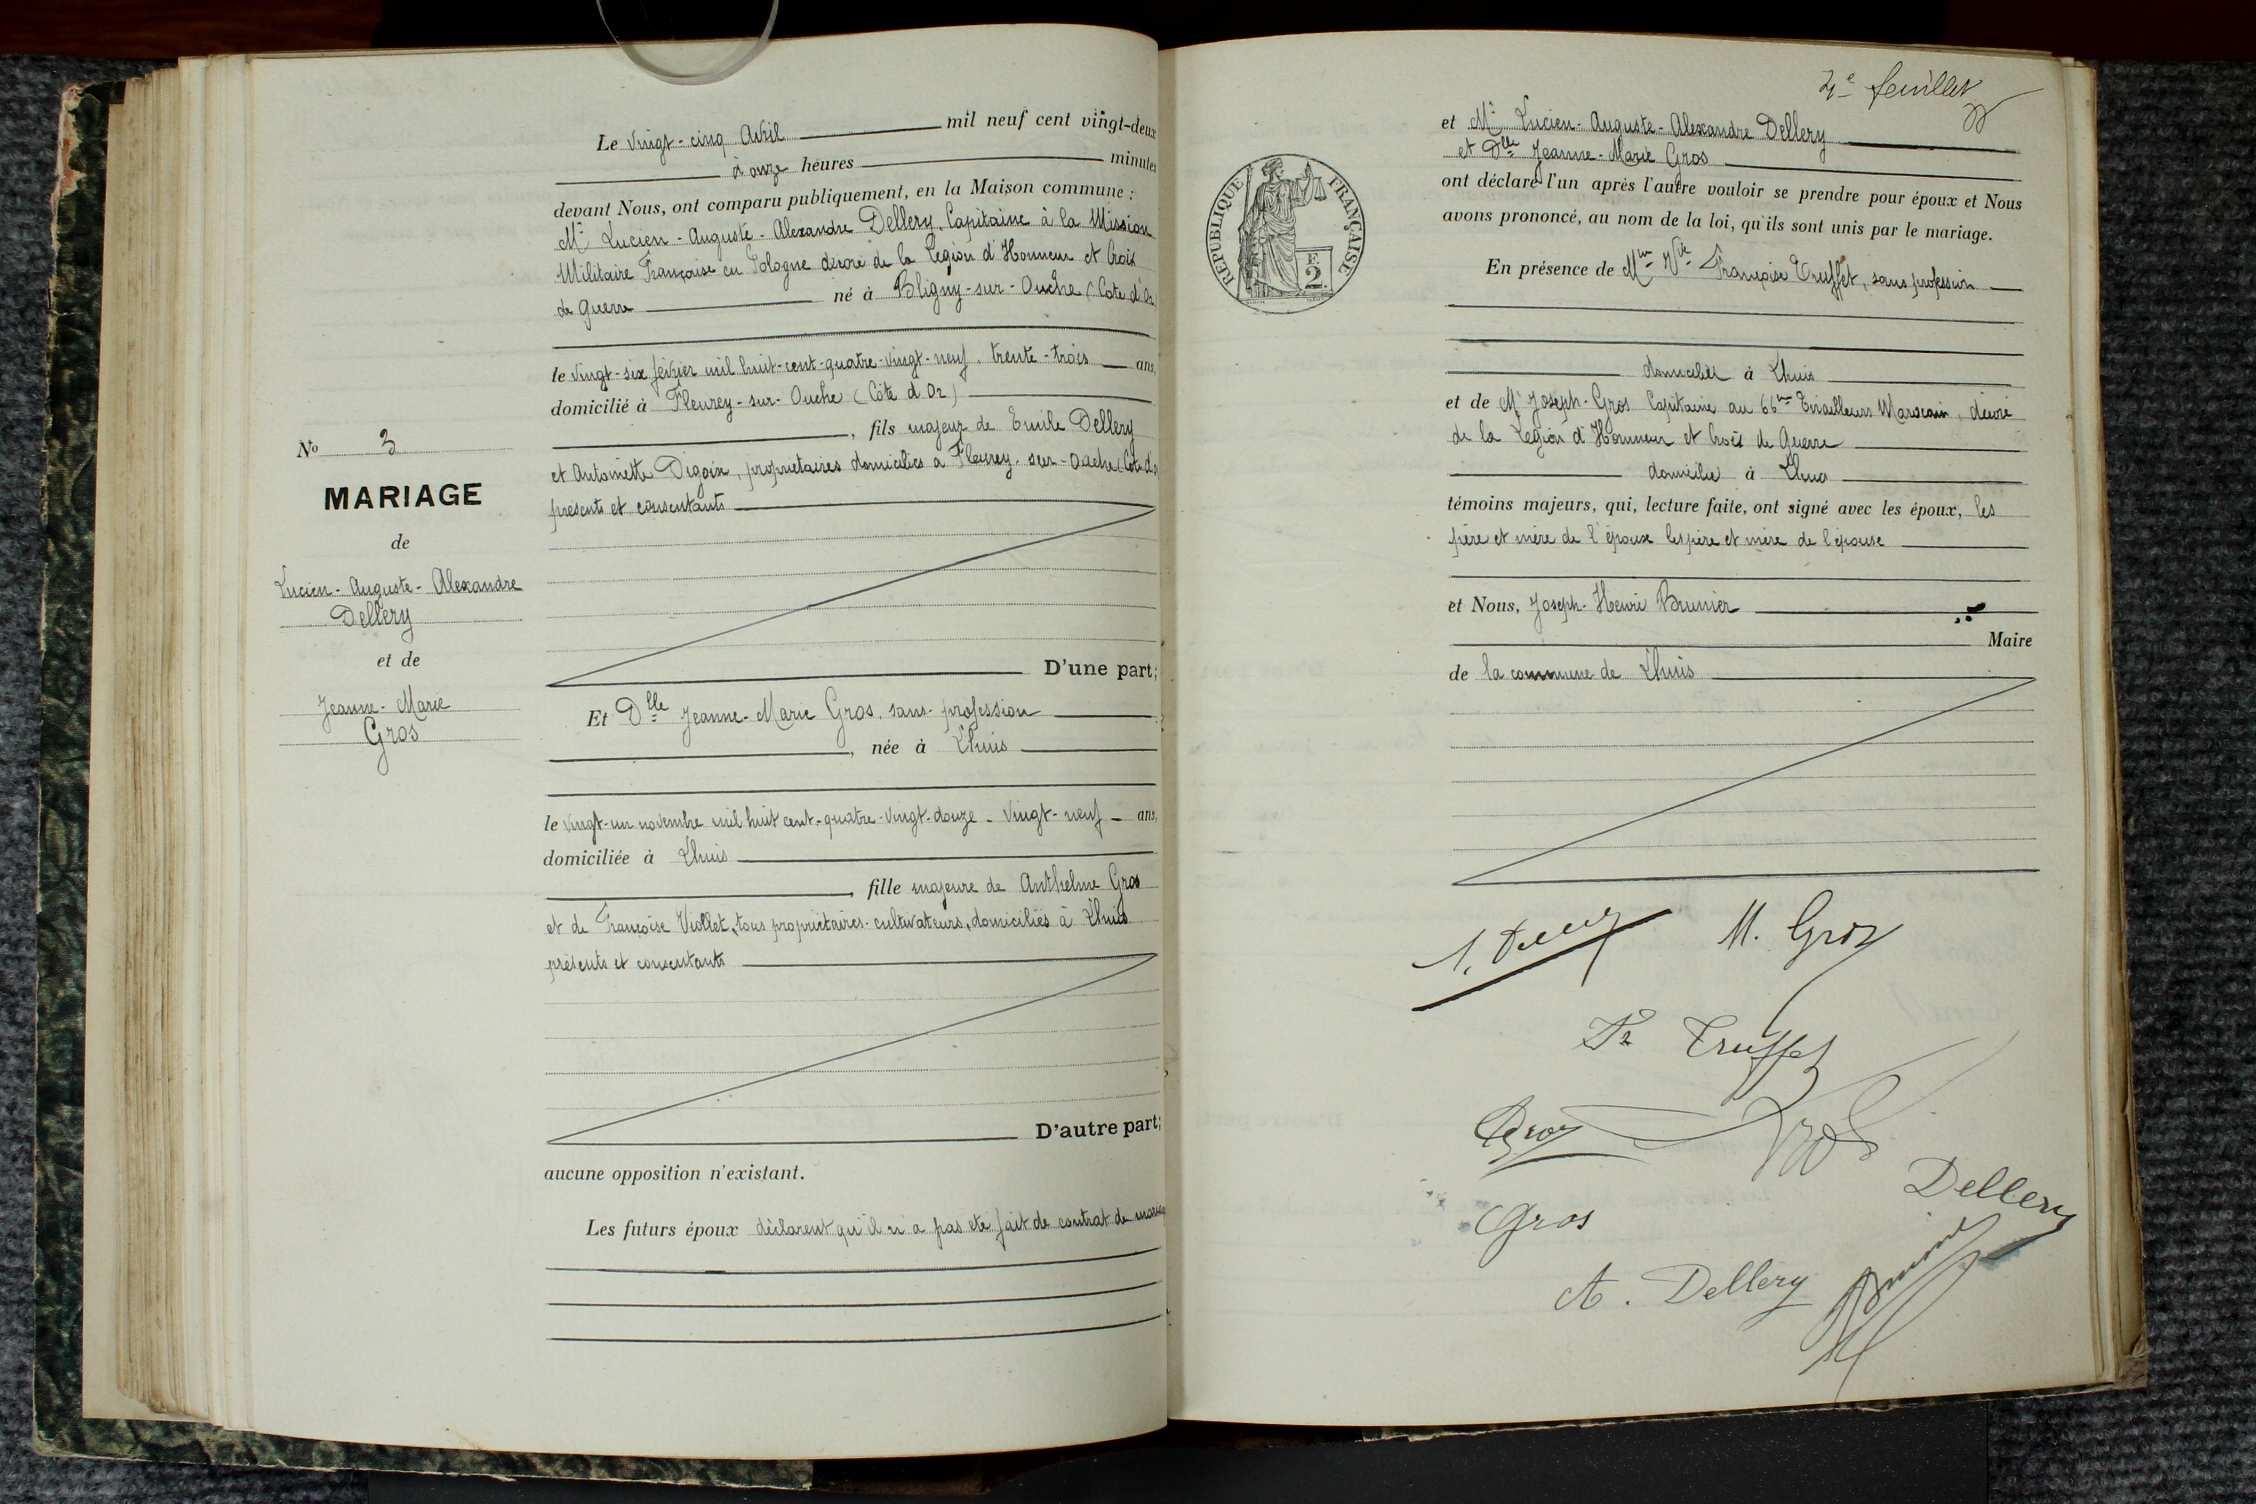 Le vingt-cinq Avril mil neuf cent vingt-deux
à onze heures minutes
devant Nous, ont comparu publiquement, en la Maison commune :
Mr Lucien-Auguste-Alexandre Dellery, Capitaine à la Mission
Militaire Française en Pologne décoré de la Légion d'Honneur et Croix
de Guerre né à Bligny-sur-Ouche (Cote d'Or
le vingt-six février mil huit-cent-quatre-vingt-neuf, trente-trois ans,
domicilié à Fleurey-sur-Ouche (Côte d'Or)
, fils majeur de Emile Dellery
et Antoinette Digoin, propriétaires domiciliés à Fleurey-sur-Ouche (Cote d'O
présents et consentants
No 3
MARIAGE
de
Lucien-Auguste-Alexandre
Dellery
et de
Jeanne-Marie
Gros
D'une part;
Et Dlle Jeanne-Marie Gros, sans profession
, née à Lhuis
le vingt-un novembre mil huit cent-quatre-vingt-douze - vingt-neuf - ans,
domiciliée à Lhuis
, fille majeure de Anthelme Gros
et de Françoise Viollet, tous propriétaires-cultivateurs, domiciliés à Lhuis
présents et consentants
D'autre part;
aucune opposition n'existant.
Les futurs époux déclarent qu'il n'a pas été fait de contrat de mariage
feuillet
et Mr Lucien-Auguste-Alexandre Dellery
et Dlle Jeanne-Marie Gros
ont déclaré l'un après l'autre vouloir se prendre pour époux et Nous
avons prononcé, au nom de la loi, qu'ils sont unis par le mariage.
RÉPUBLIQUE FRANÇAISE
F.
2
En présence de Mme Vve Françoise Truffet, sans profession
domiciliée à Lhuis
et de Mr Joseph-Gros Capitaine au 66me Tirailleurs Marocain, décoré
de la Légion d'Honneur et Croix de Guerre
domicilié à Lhuis
témoins majeurs, qui, lecture faite, ont signé avec les époux, les
père et mère de l'époux les père et mère de l'épouse
et Nous, Joseph-Henri Brunier
Maire
de la commune de Lhuis
M. Gros
Fr Truffet
Gros
Gros
Dellery
A. Dellery